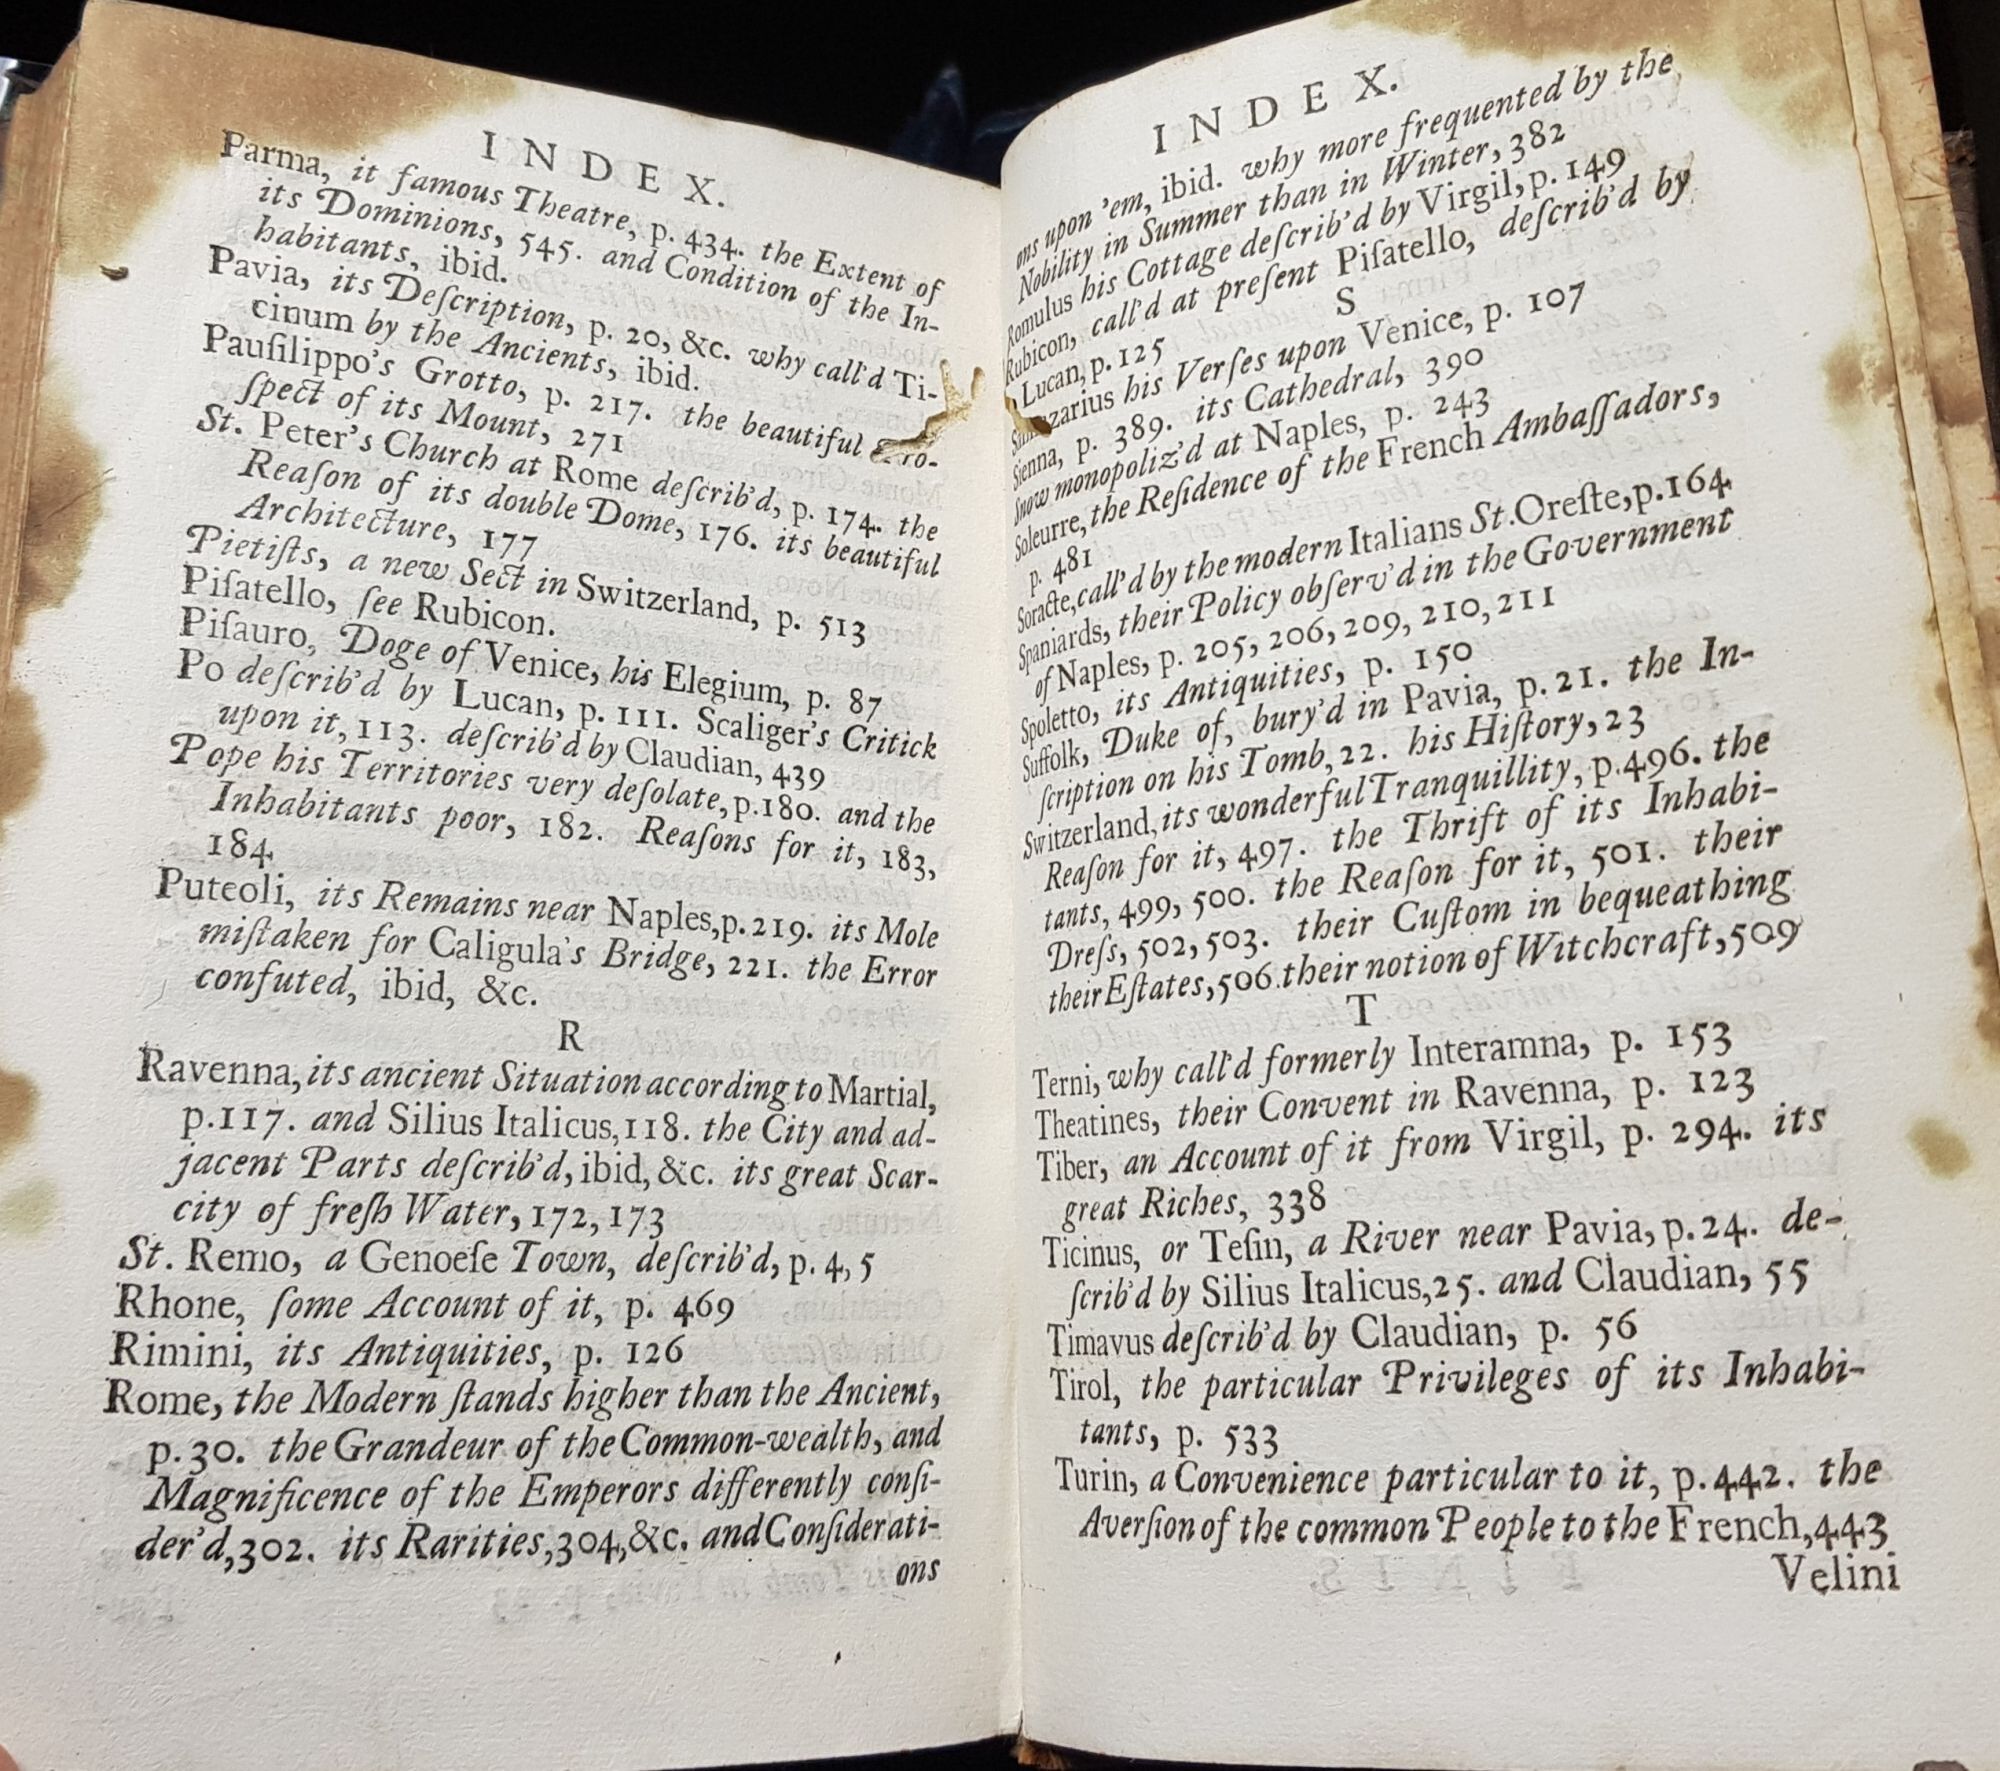 INDEX.
Parma, it famous Theatre, p. 434. the Extent of
its Dominions, 545. and Condition of the In-
habitants, ibid.
Pavia, its Deſcription, p. 20, &c. why call'd Ti-
cinum by the Ancients, ibid.
Pauſilippo's Grotto, p. 217. the beautiful
ſpect of its Mount, 271
St. Peter's Church at Rome deſcrib'd, p. 174. the
Reaſon of its double Dome, 176. its beautiful
Architecture, 177
Pietiſts, a new Sect in Switzerland, p. 513
Piſatello, ſee Rubicon.
Piſauro, Doge of Venice, his Elegium, p. 87
Po deſcrib'd by Lucan, p. 111. Scaliger's Critick
upon it, 113. deſcrib'd by Claudian, 439
Pope his Territories very deſolate, p. 180. and the
Inhabitants poor, 182. Reaſons for it, 183,
184
Puteoli, its Remains near Naples, p. 219. its Mole
miſtaken for Caligula's Bridge, 221. the Error
confuted, ibid, &c.
R
Ravenna, its ancient Situation according to Martial,
p. 117. and Silius Italicus, 118. the City and ad-
jacent Parts deſcrib'd, ibid, &c. its great Scar-
city of freſh Water, 172, 173
St. Remo, a Genoeſe Town, deſcrib'd, p. 4, 5
Rhone, ſome Account of it, p. 469
Rimini, its Antiquities, p. 126
Rome, the Modern ſtands higher than the Ancient,
p. 30. the Grandeur of the Common-wealth, and
Magnificence of the Emperors differently conſi-
der'd, 302. its Rarities, 304, &c. and Conſiderati-
ons
INDEX.
ons upon 'em, ibid. why more frequented by the
Nobility in Summer than in Winter, 382
Romulus his Cottage deſcrib'd by Virgil, p. 149
Rubicon, call'd at preſent Piſatello, deſcrib'd by
Lucan, p. 125
S
his Verſes upon Venice, p. 107
Sienna, p. 389. its Cathedral, 390
Snow monopoliz'd at Naples, p. 243
Soleurre, the Reſidence of the French Ambaſſadors,
p. 481
Soracte, call'd by the modern Italians St. Oreſte, p. 164
Spaniards, their Policy obſerv'd in the Government
of Naples, p. 205, 206, 209, 210, 211
Spoletto, its Antiquities, p. 150
Suffolk, Duke of, bury'd in Pavia, p. 21. the In-
ſcription on his Tomb, 22. his Hiſtory, 23
Switzerland, its wonderful Tranquillity, p. 496. the
Reaſon for it, 497. the Thrift of its Inhabi-
tants, 499, 500. the Reaſon for it, 501. their
Dreſs, 502, 503. their Cuſtom in bequeathing
their Eſtates, 506. their notion of Witchcraft, 509
T
Terni, why call'd formerly Interamna, p. 153
Theatines, their Convent in Ravenna, p. 123
Tiber, an Account of it from Virgil, p. 294. its
great Riches, 338
Ticinus, or Teſin, a River near Pavia, p. 24. de-
ſcrib'd by Silius Italicus, 25. and Claudian, 55
Timavus deſcrib'd by Claudian, p. 56
Tirol, the particular Privileges of its Inhabi-
tants, p. 533
Turin, a Convenience particular to it, p. 442. the
Averſion of the common People to the French, 443
Velini